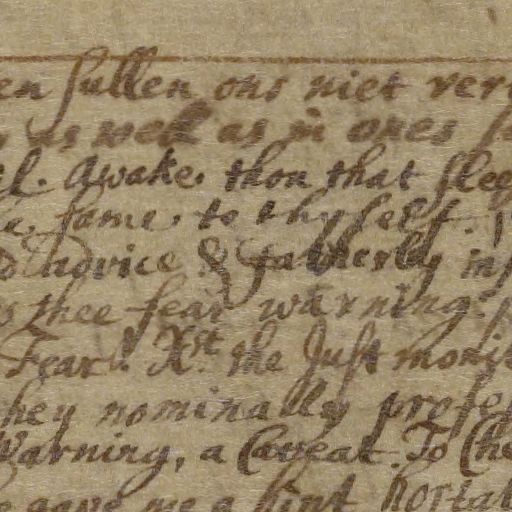 en sullen ons niet ver
as well as in ones
Awake thou that slee
fame to thy self.
advice & fatherly in
thee fear warning.
Fear. Xst. the Just moni
hey nominally profes
Warning, a Caveat. To Che
gave me a hint hortat